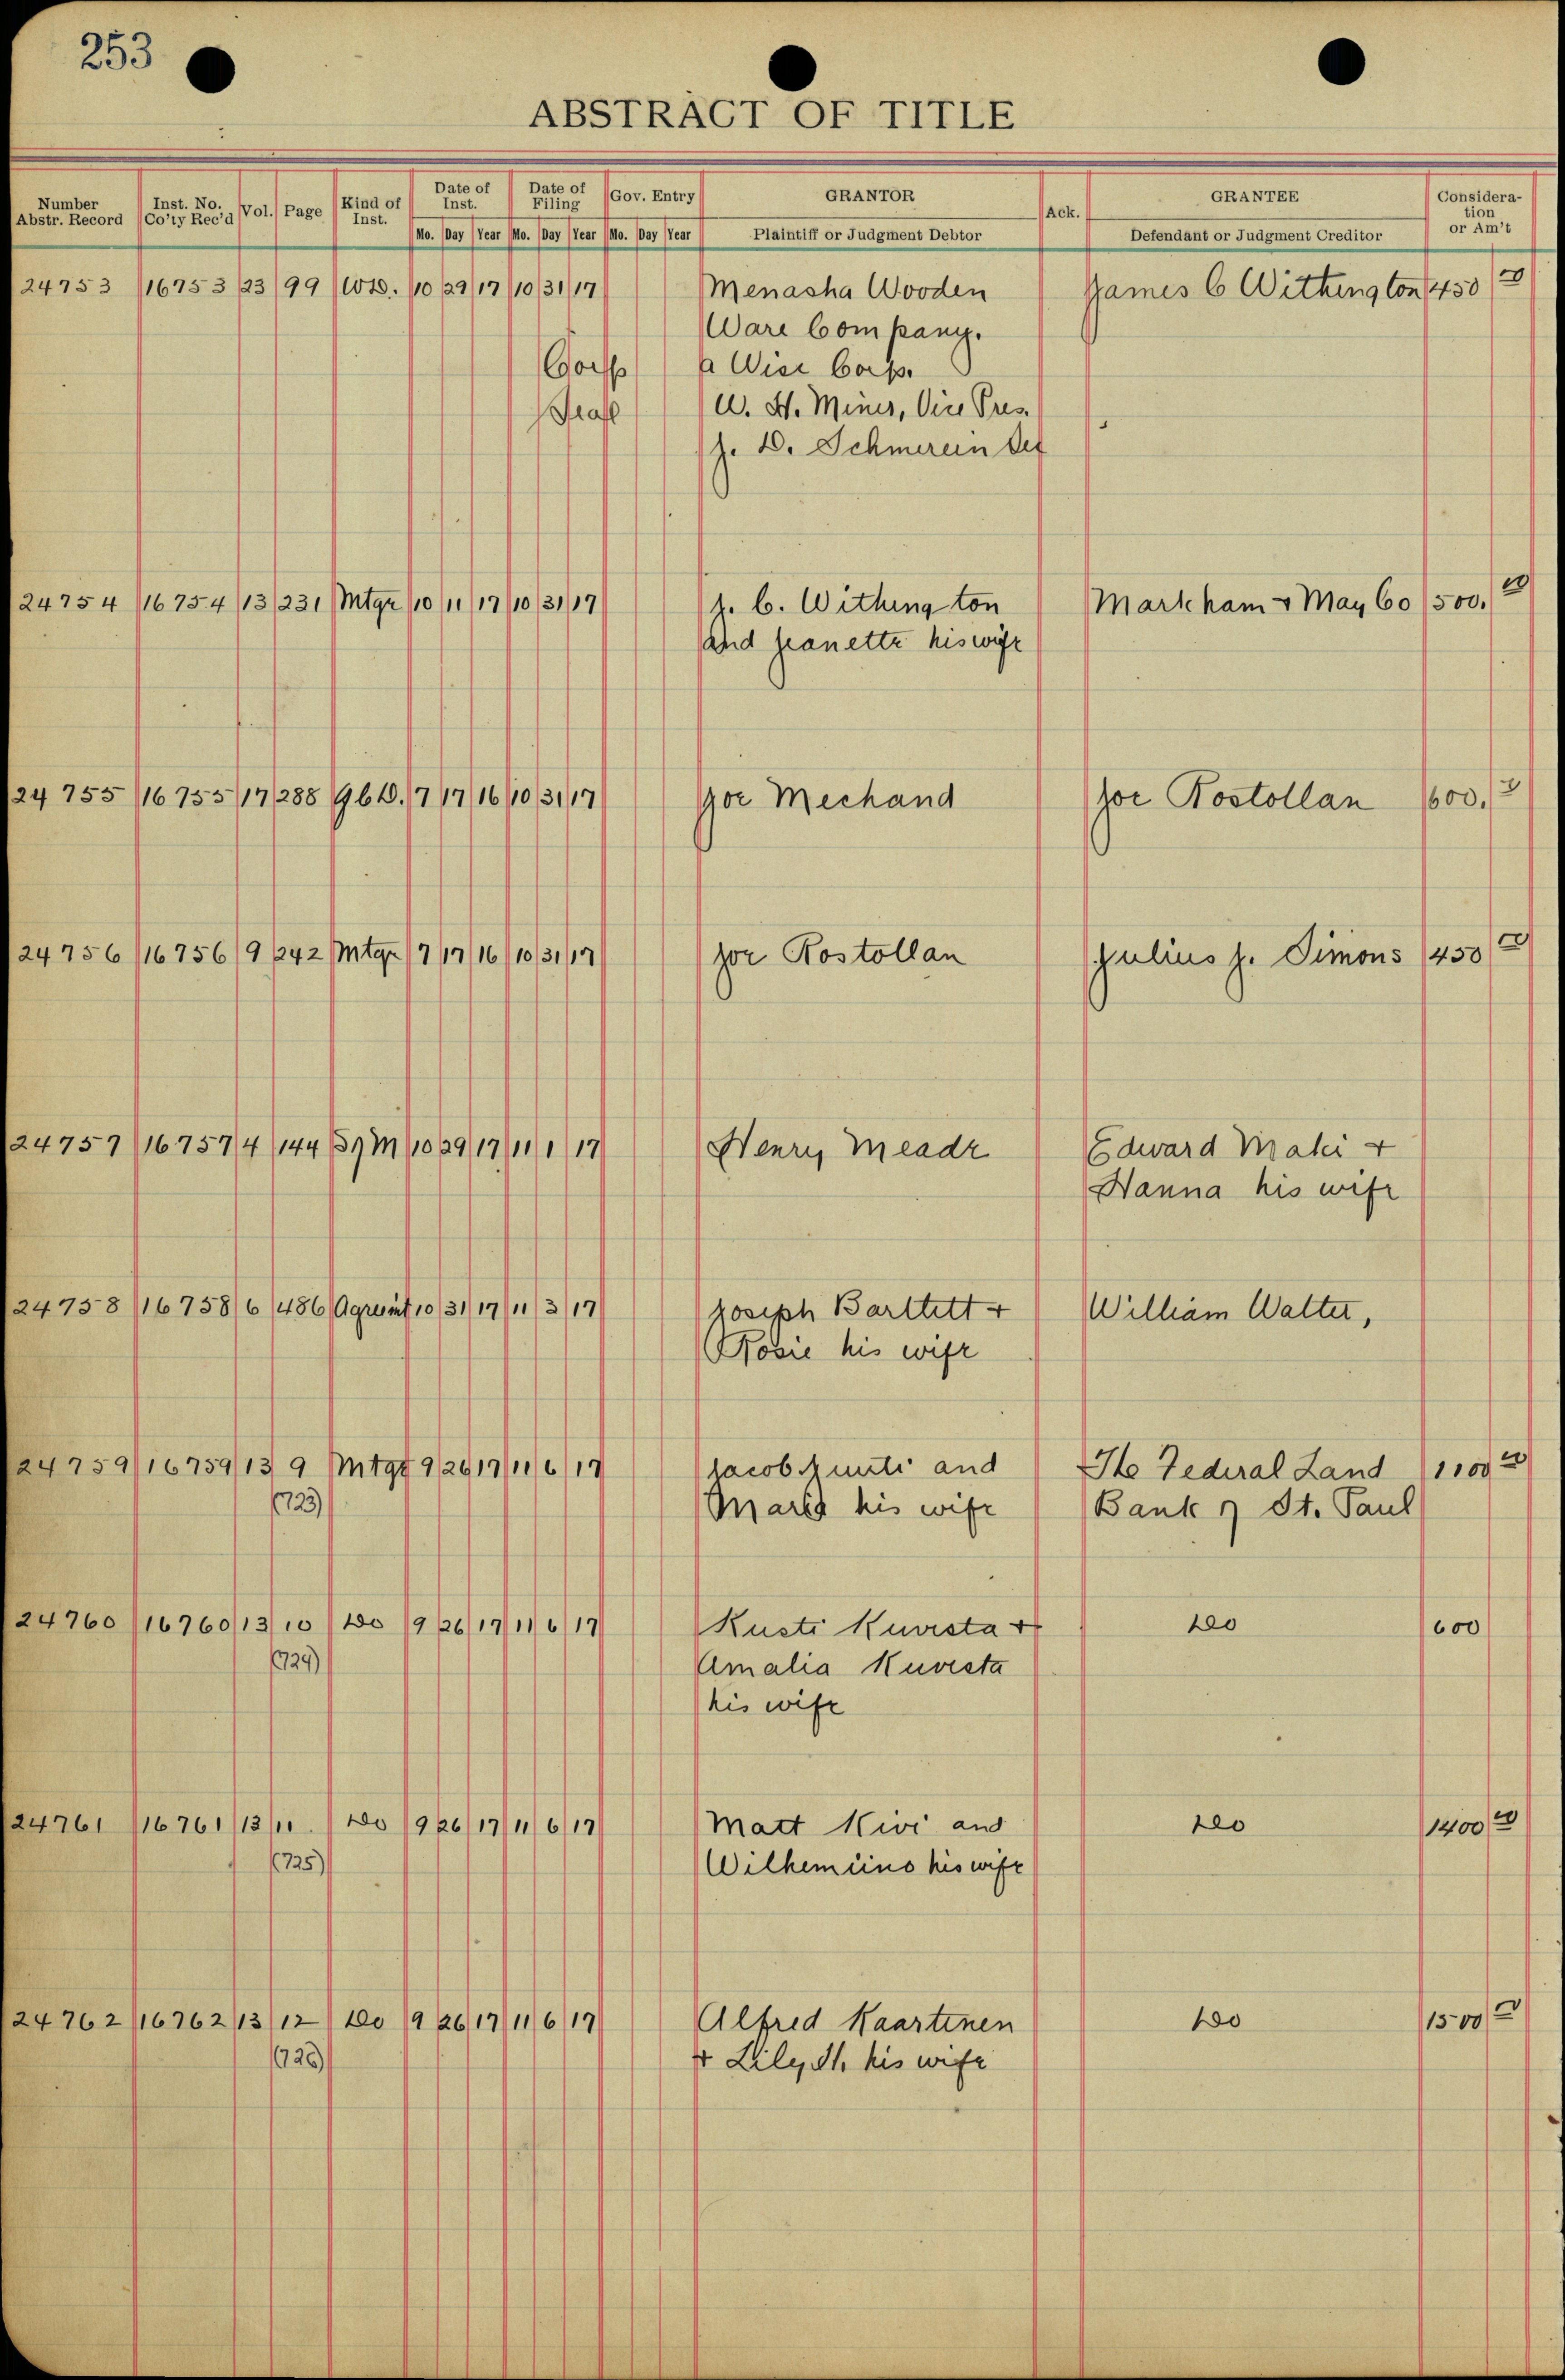 253
ABSTRACT OF TITLE
Number Abstr. Record Inst. No. Co'ty Rec'd Vol. Page Kind of Inst. Date of Inst. Date of Filing Gov. Entry GRANTOR Ack. GRANTEE Consideration or Am't
Mo. Day Year Mo. Day Year Mo. Day Year Plaintiff or Judgment Debtor Defendant or Judgment Creditor
24753 16753 23 99 WD. 10 29 17 10 31 17 Menasha Wooden James C Withington 450
Ware Company.
Corp a Wisc Corp.
Seal W. H. Miner, Vice Pres.
J. D. Schmerein Sec
24754 16754 13 231 Mtge 10 11 17 10 31 17 J. C. Withington Markham + May Co 500.
and Jeanette his wife
24755 16755 17 288 QCD. 7 17 16 10 31 17 Joe Mechand Joe Rostollan 600.
24756 16756 9 242 Mtge 7 17 16 10 31 17 Joe Rostollan Julius J. Simons 450
24757 16757 4 144 Sat M 10 29 17 11 1 17 Henry Meade Edward Maki +
Hanna his wife
24758 16758 6 486 Agreemt 10 31 17 11 3 17 Joseph Barttett + William Walter,
Rosie his wife
24759 16759 13 9 Mtge 9 26 17 11 6 17 Jacob and The Federal Land 1100
(723) his wife Bank of St. Paul
24760 16760 13 10 Do 9 26 17 11 6 17 Kusti Kuvesta + Do 600
(724) Amalia Kuvesta
his wife
24761 16761 13 11. Do 9 26 17 11 6 17 Matt Kivi and Do 1400
(725) Wilhemiino his wife
24762 16762 13 12 Do 9 26 17 11 6 17 Alfred Kaartinen Do 1500
(726) + Lily H. his wife